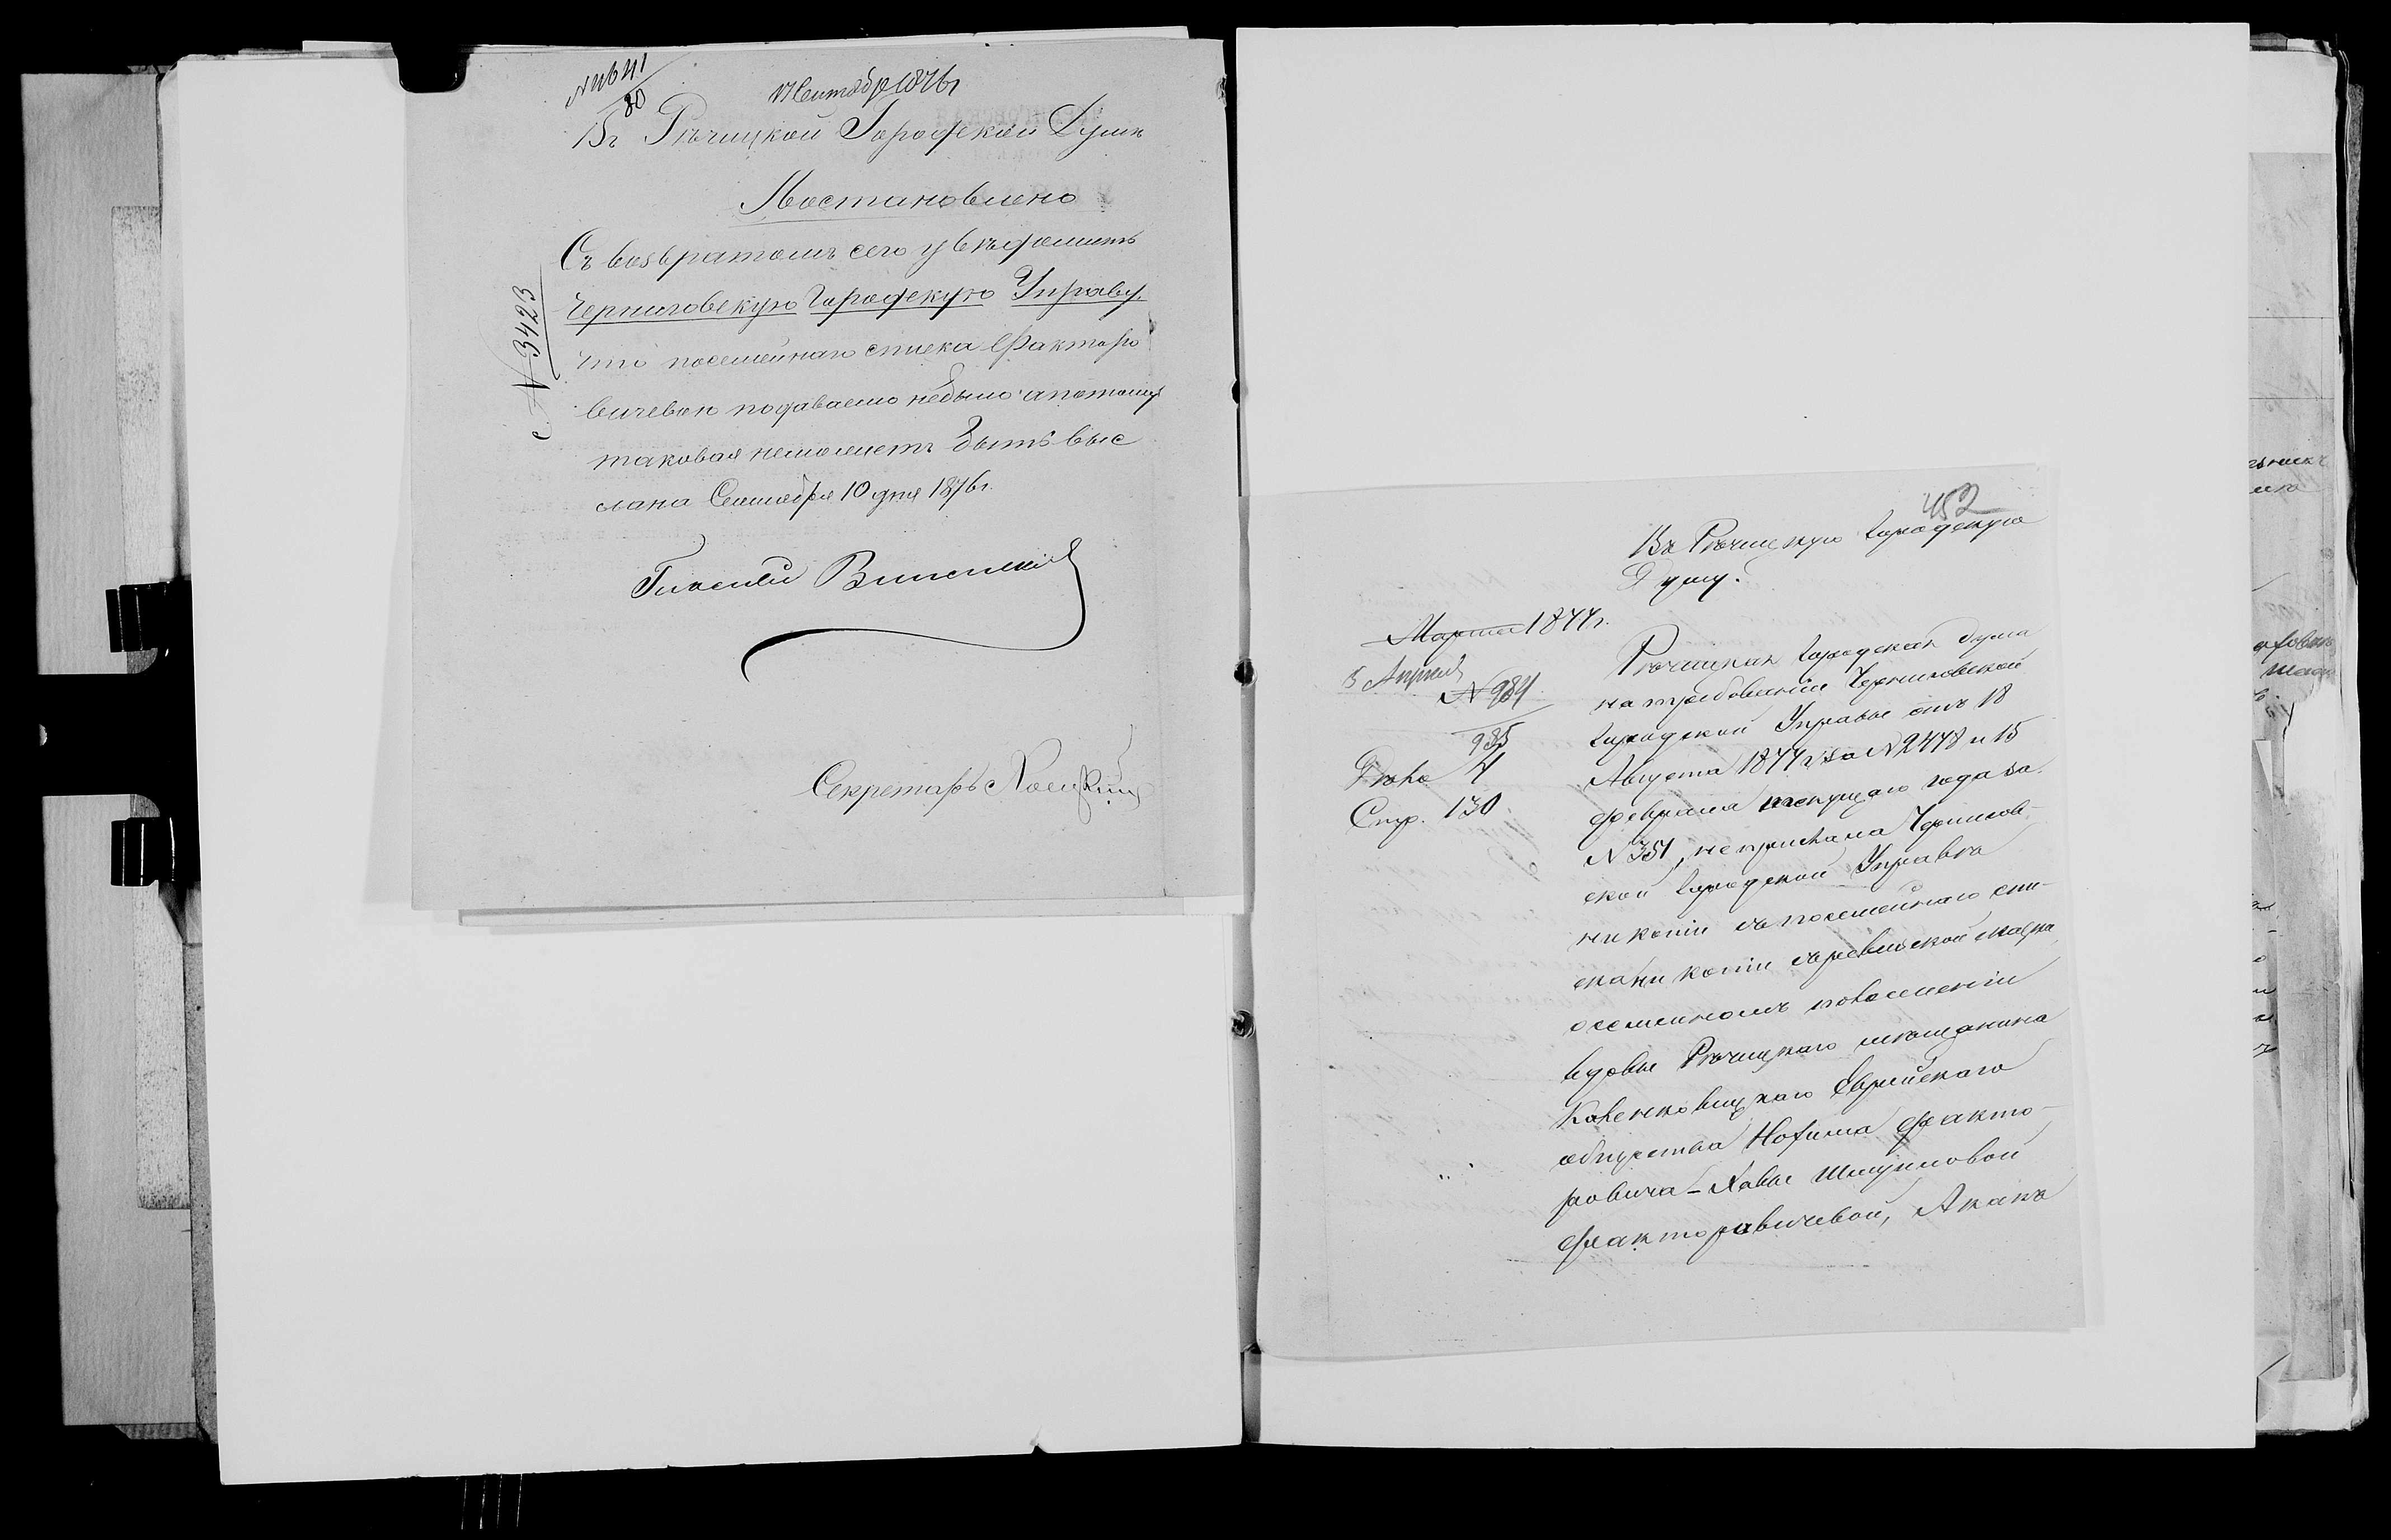 N 4641
80
17 Сентября 1876 г
Въ Рѣчицкой Городской Думѣ
Постановлено
Съ возвратомъ сего увѣдомить
Черниговскую Городскую Управу,
что посемейнаго списка Факторо
вичевою подаваемо небыло апотому
таковая неможетъ быть выс
лана Сентября 10 дня 1876 г.
N 3423
Гласный
Секретарь
452
Въ Рѣчицкую Городскую
Думу.
Марта 1877 г.
5 Апреля
N 984
985
Дѣло 4
Стр. 130
Рѣчицкая Городская Дума
на требованіе Черниговской
Городской Управы отъ 18
Августа 1877 г. за N 2478 и 15
февраля текущаго года за
N 351, не прислала Черниговской
ской Городской Управѣ
ни копіи съ посемейнаго спи-
ска ни копіи съ ревизской сказки
о семейномъ положеніи
вдовы Рѣчицкаго мѣщанина
Каленковицкаго Еврейскаго
общества Нохима Факто-
ровича – Хавы Шмуиловой
Факторовичевой, А какъ